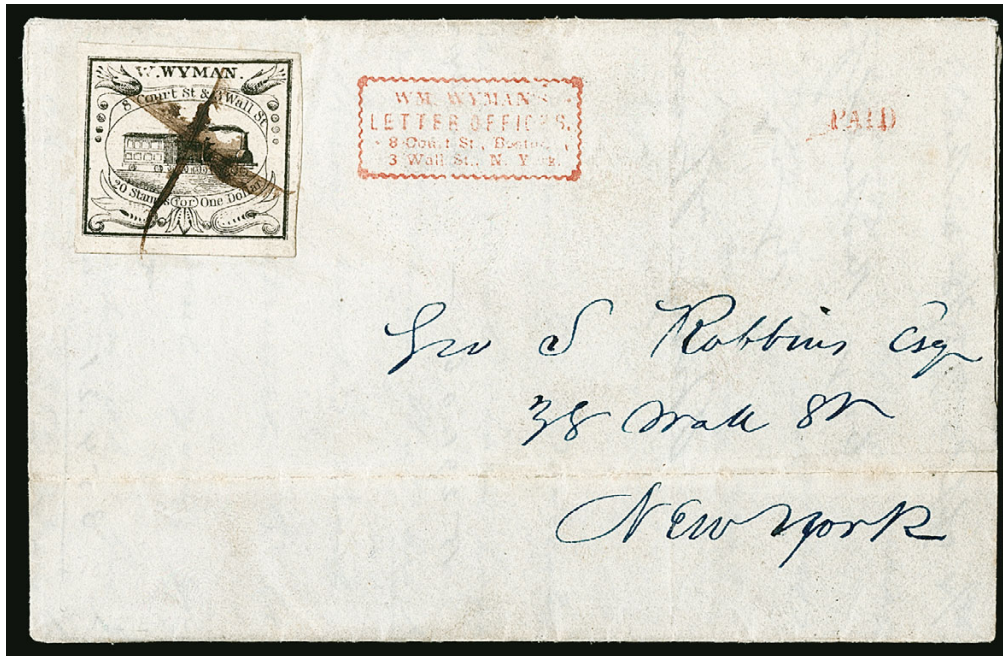 W. WYMAN.
8 Court St & 3 Wall St.
20 Stamps for One Dollar
WM. WYMAN'S
LETTER OFFICES,
8 Court St., Boston,
3 Wall St., N. York.
PAID
Geo S Robbins Esq
38 Wall St
New York